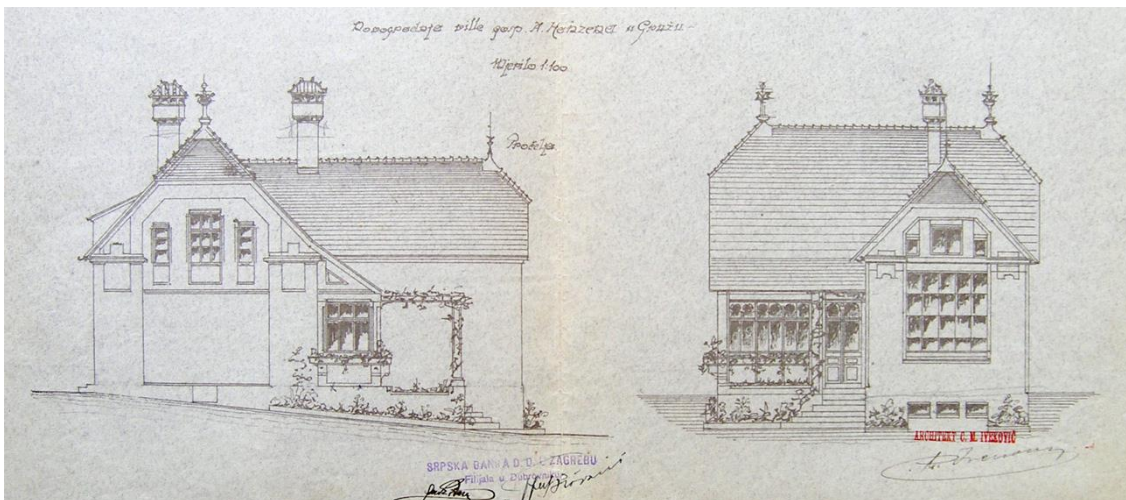 Dogogradnja ville gosp. A. Heinzena u Gružu
Mjerilo 1:100
Pročelja
SRPSKA BANKA D. D. U ZAGREBU
Filijala u Dubrovniku
ARCHITEKT Ć. M. IVEKOVIĆ